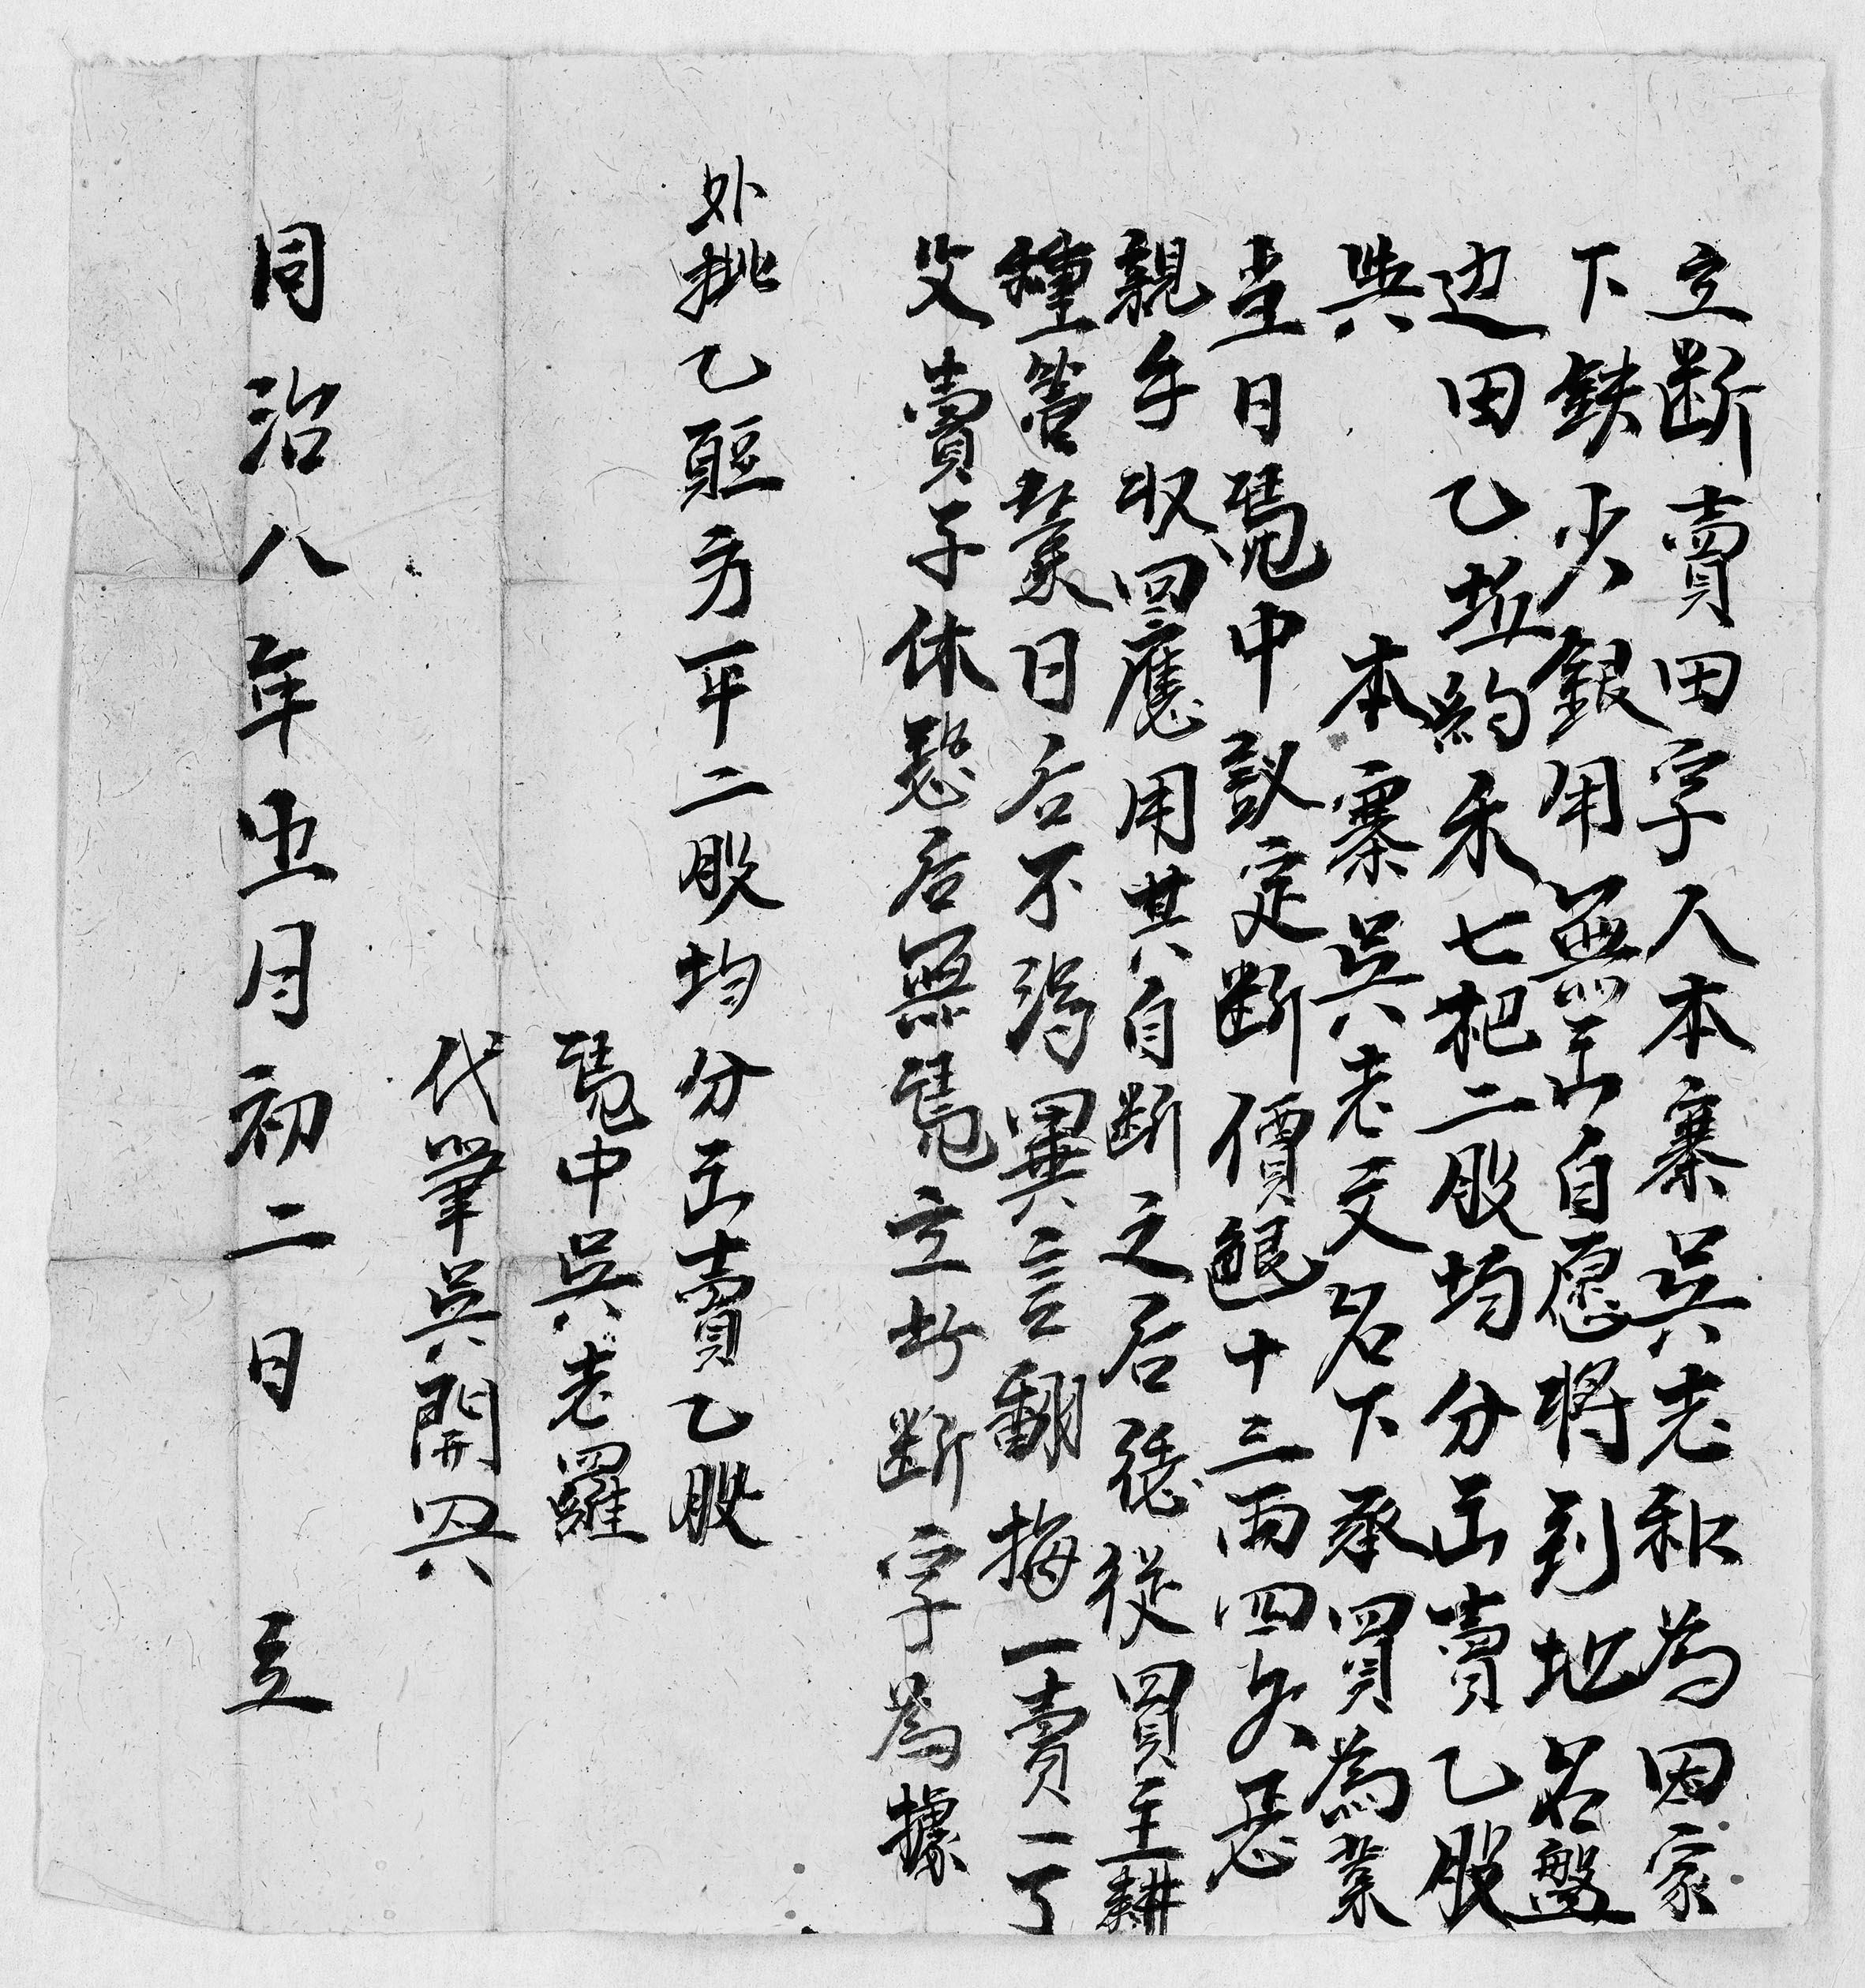 立断賣田字人本寨吳老和為因家
下鉄少銀用無出自愿將到地名盤
边田乙坵約禾七把二股均分出賣乙股
與　本寨吳老文名下承買為業
当日憑中議定断價銀十三両四欠㤙
親手収回應用其自断之后凴從買主耕
種管業日后不淂異言翻悔一賣一了
父賣子休恐后無憑立此断字為據
外批乙聠方平二股均分出賣乙股
憑中吳老羅
代筆吳開興
同治八年五月初二日　立